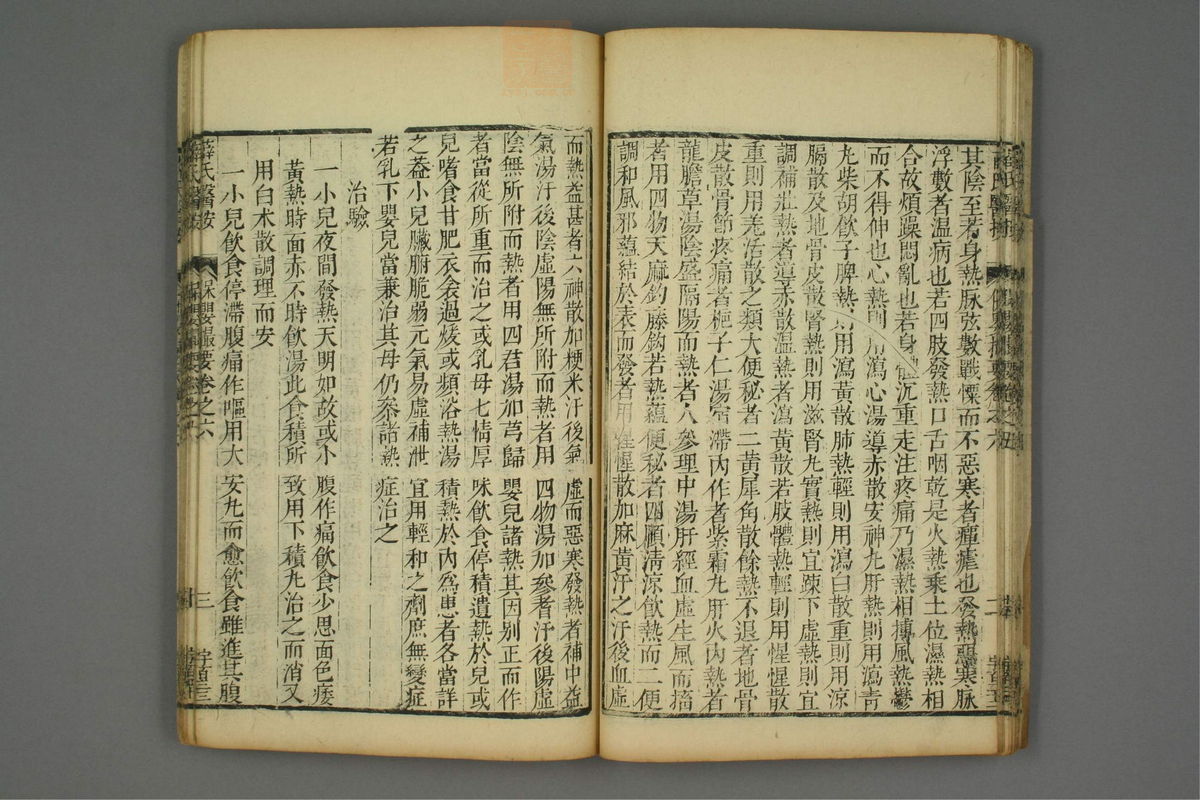 其陰至若身熱脉弦數戰慄而不惡寒者癉瘧也發熱惡寒脉
浮數者温病也若四肢發熱口舌咽乾是火熱乘土位濕熱相
合故煩躁悶亂也若身體沉重走注疼痛乃濕熱相搏風熱鬱
而不得伸也心熱則用瀉心湯導赤散安神丸肝熱則用瀉青
丸柴胡飲子脾熱用瀉黃散肺熱輕則用瀉白散重則用涼
膈散及地骨皮散腎熱則用滋腎丸實熱則宜疎下虛熱則宜
調補壯熱者導赤散温熱者瀉黃散若肢體熱輕則用惺惺散
重則用羗活散之類大便秘者二黃犀角散餘熱不退者地骨
皮散骨節疼痛者梔子仁湯宿滯内作者紫霜丸肝火内熱者
龍膽草湯陰盛隔陽而熱者人參理中湯肝經血虛生風而搐
者用四物天麻鈎藤鈎若熱蘊便秘者四順清凉飲熱而二便
調和風邪蘊結於表而發者用惺惺散加麻黃汗之汗後血虛
而熱益甚者六神散加粳米汗後氣虛而惡寒發熱者補中益
氣湯汗後陰虛陽無所附而熱者用四物湯加參者汗後陽虛
陰無所附而熱者用四君湯加芎歸嬰兒諸熱其因别正而作
者當從所重而治之或乳母七情厚味飲食停積遺熱於兒或
兒嗜食甘肥衣衾過煖或頻浴熱湯積熱於内爲患者各當詳
之葢小兒臟腑脆弱元氣易虛補泄宜用輕和之劑庶無變症
若乳下嬰兒當兼治其母仍叅諸熱症治之
治驗
一小兒夜間發熱天明如故或小腹作痛飲食少思面色痿
黃熱時面赤不時飲湯此食積所致用下積丸治之而消又
用白术散調理而安
一小兒飲食停滯腹痛作嘔用大安丸而愈飲食雖進其腹
薛氏醫按 保嬰撮要卷之六 三